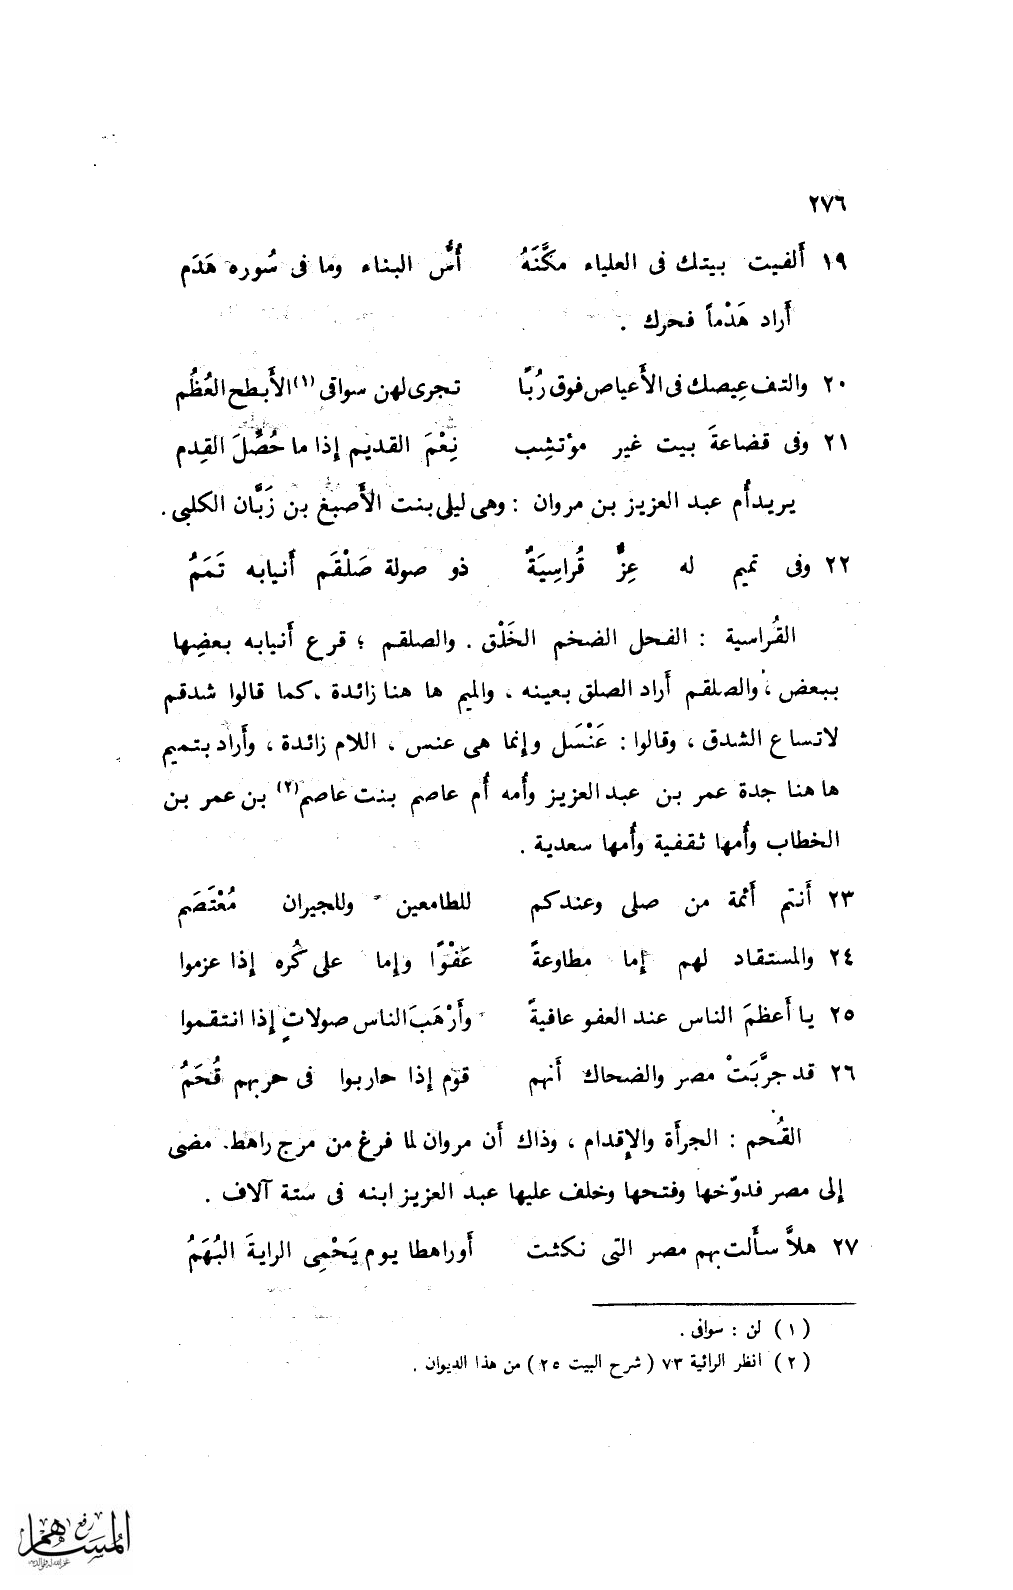 ٢٧٦
١٩ أَلفيت بيتك فى العلياء مكَّنَهُ أُسُّ البناء وما فى سُوره هَدَم
أَراد هَدْماً فحرك .
٢٠ والتف عِيصك فى الأَعياص فوق رُبًا تجرى لهن سواقى (١) الأَبطح العُظُم
٢١ وفى قضاعةَ بيت غير مؤتشِب نِعْمَ القديم إذا ما حُصِّلَ القِدم
يريد أُم عبد العزيز بن مروان : وهى ليلى بنت الأَصبغ بن زَبَّان الكلبى .
٢٢ وفى تميم له عِزٌّ قُراسِيَةٌ ذو صولة صَلْقَم أَنيابه تَمَمُ
القُراسية : الفحل الضخم الخَلْق . والصلقم ؛ قرع أَنيابه بعضِها
ببعض ، والصلقم أَراد الصلق بعينه ، والميم ها هنا زائدة ، كما قالوا شدقم
لاتساع الشدق ، وقالوا : عَنْسَل وإنما هى عنس ، اللام زائدة ، وأَراد بتميم
ها هنا جدة عمر بن عبد العزيز وأُمه أُم عاصم بنت عاصم (٢) بن عمر بن
الخطاب وأُمها ثقفية وأُمها سعدية .
٢٣ أَنتم أَئمة من صلى وعندكم للطامعين وللجيران مُعْتَصَم
٢٤ والمستقاد لهم إما مطاوعةً عَفْوًا وإما على كُره إذا عزموا
٢٥ يا أَعظمَ الناس عند العفو عافيةً وأَرْهَبَ الناس صولاتٍ إذا انتقموا
٢٦ قد جرَّبَتْ مصر والضحاك أَنهم قوم إذا حاربوا فى حربهم قُحَمُ
القُحم : الجرأَة والإِقدام ، وذاك أَن مروان لما فرغ من مرج راهط. مضى
إلى مصر فدوّخها وفتحها وخلف عليها عبد العزيز ابنه فى ستة آلاف .
٢٧ هلاَّ سأَلت بهم مصر التى نكثت أَوراهطا يوم يَحْمِى الرايةَ البُهَمُ
(١) لن : سوافى .
(٢) انظر الرائية ٧٣ ( شرح البيت ٢٥ ) من هذا الديوان .